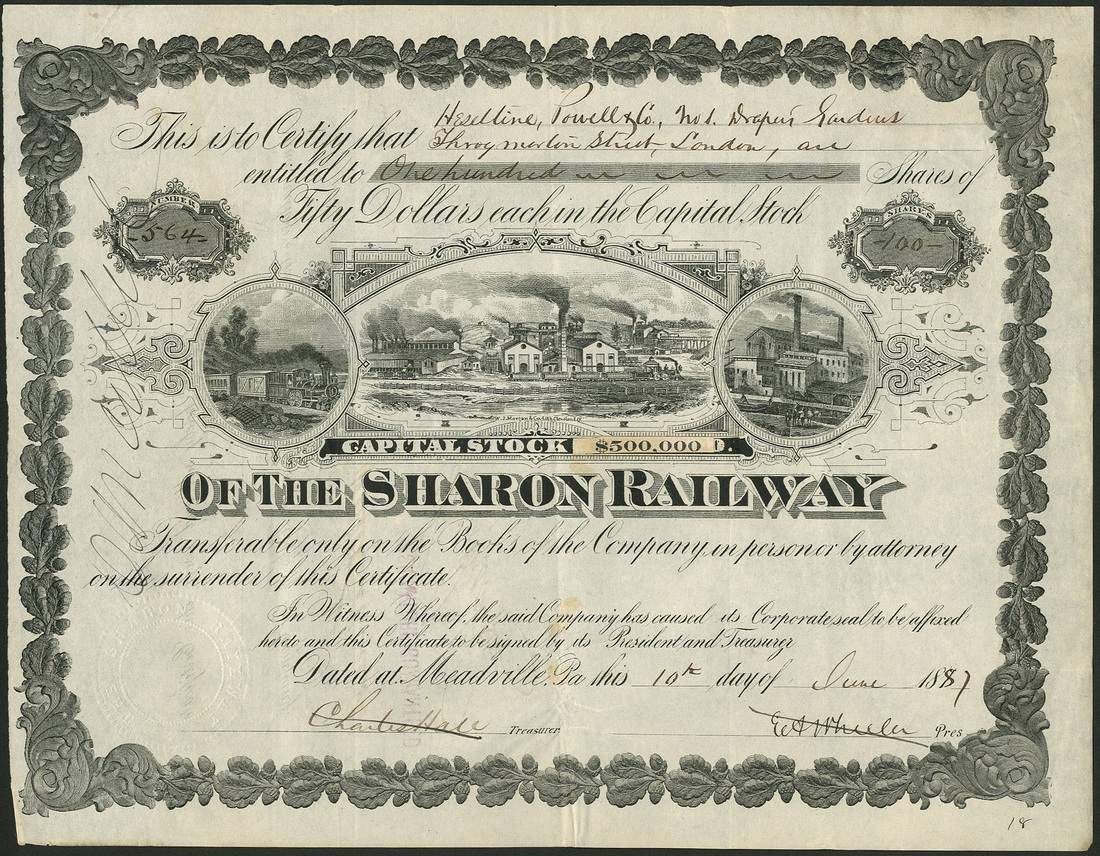 This is to Certify that Heseltine, Powell & Co., No 1. Drapers Gardens
Throgmorton Street, London, are
entitled to One hundred Shares of
NUMBER
-564-
Fifty Dollars each in the Capital Stock
SHARES
-100-
W. J. Morgan & Co. Lith. Cleveland O.
CAPITAL STOCK $500,000 D.
OF THE SHARON RAILWAY
Transferable only on the Books of the Company, in person or by attorney
on the surrender of this Certificate.
In Witness Whereof, the said Company has caused its Corporate seal to be affixed
hereto and this Certificate to be signed by its President and Treasurer
Dated at Meadville, Pa this 10th day of June 1887
Charles Hall Treasurer
E A Wheeler Pres
18